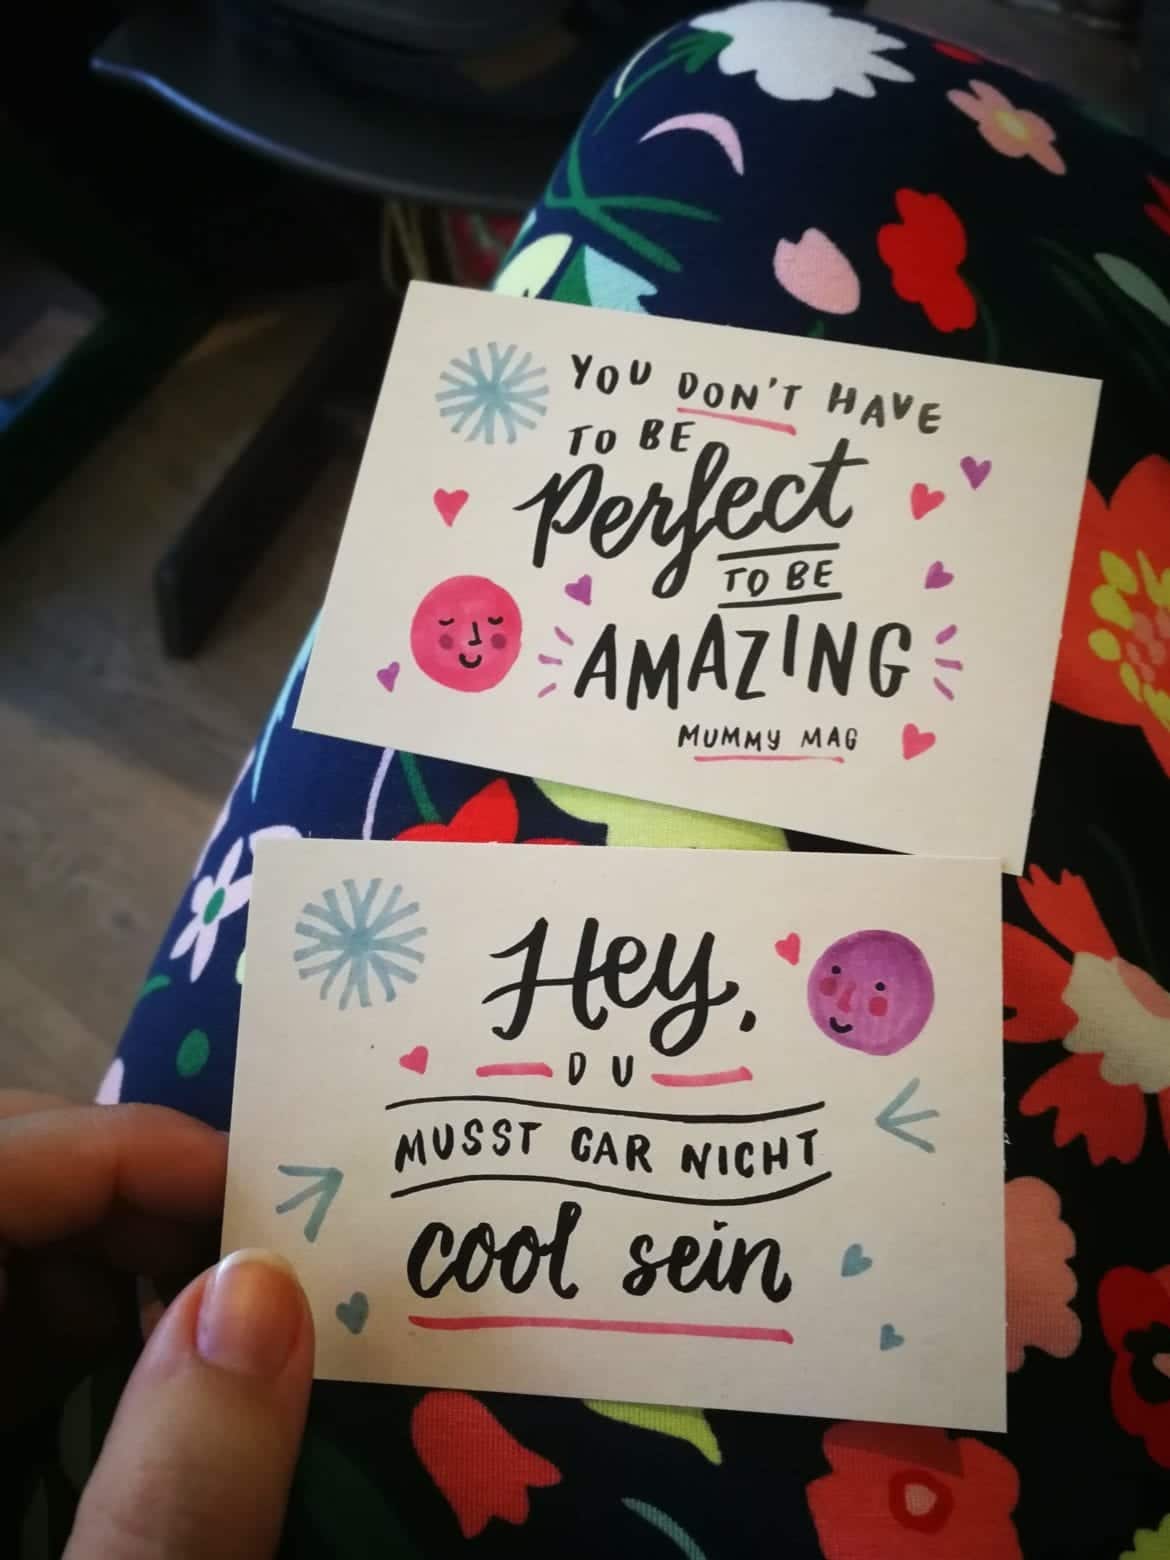 YOU DON'T HAVE
TO BE
Perfect
TO BE
AMAZING
MUMMY MAG
Hey,
DU
MUSST GAR NICHT
cool sein